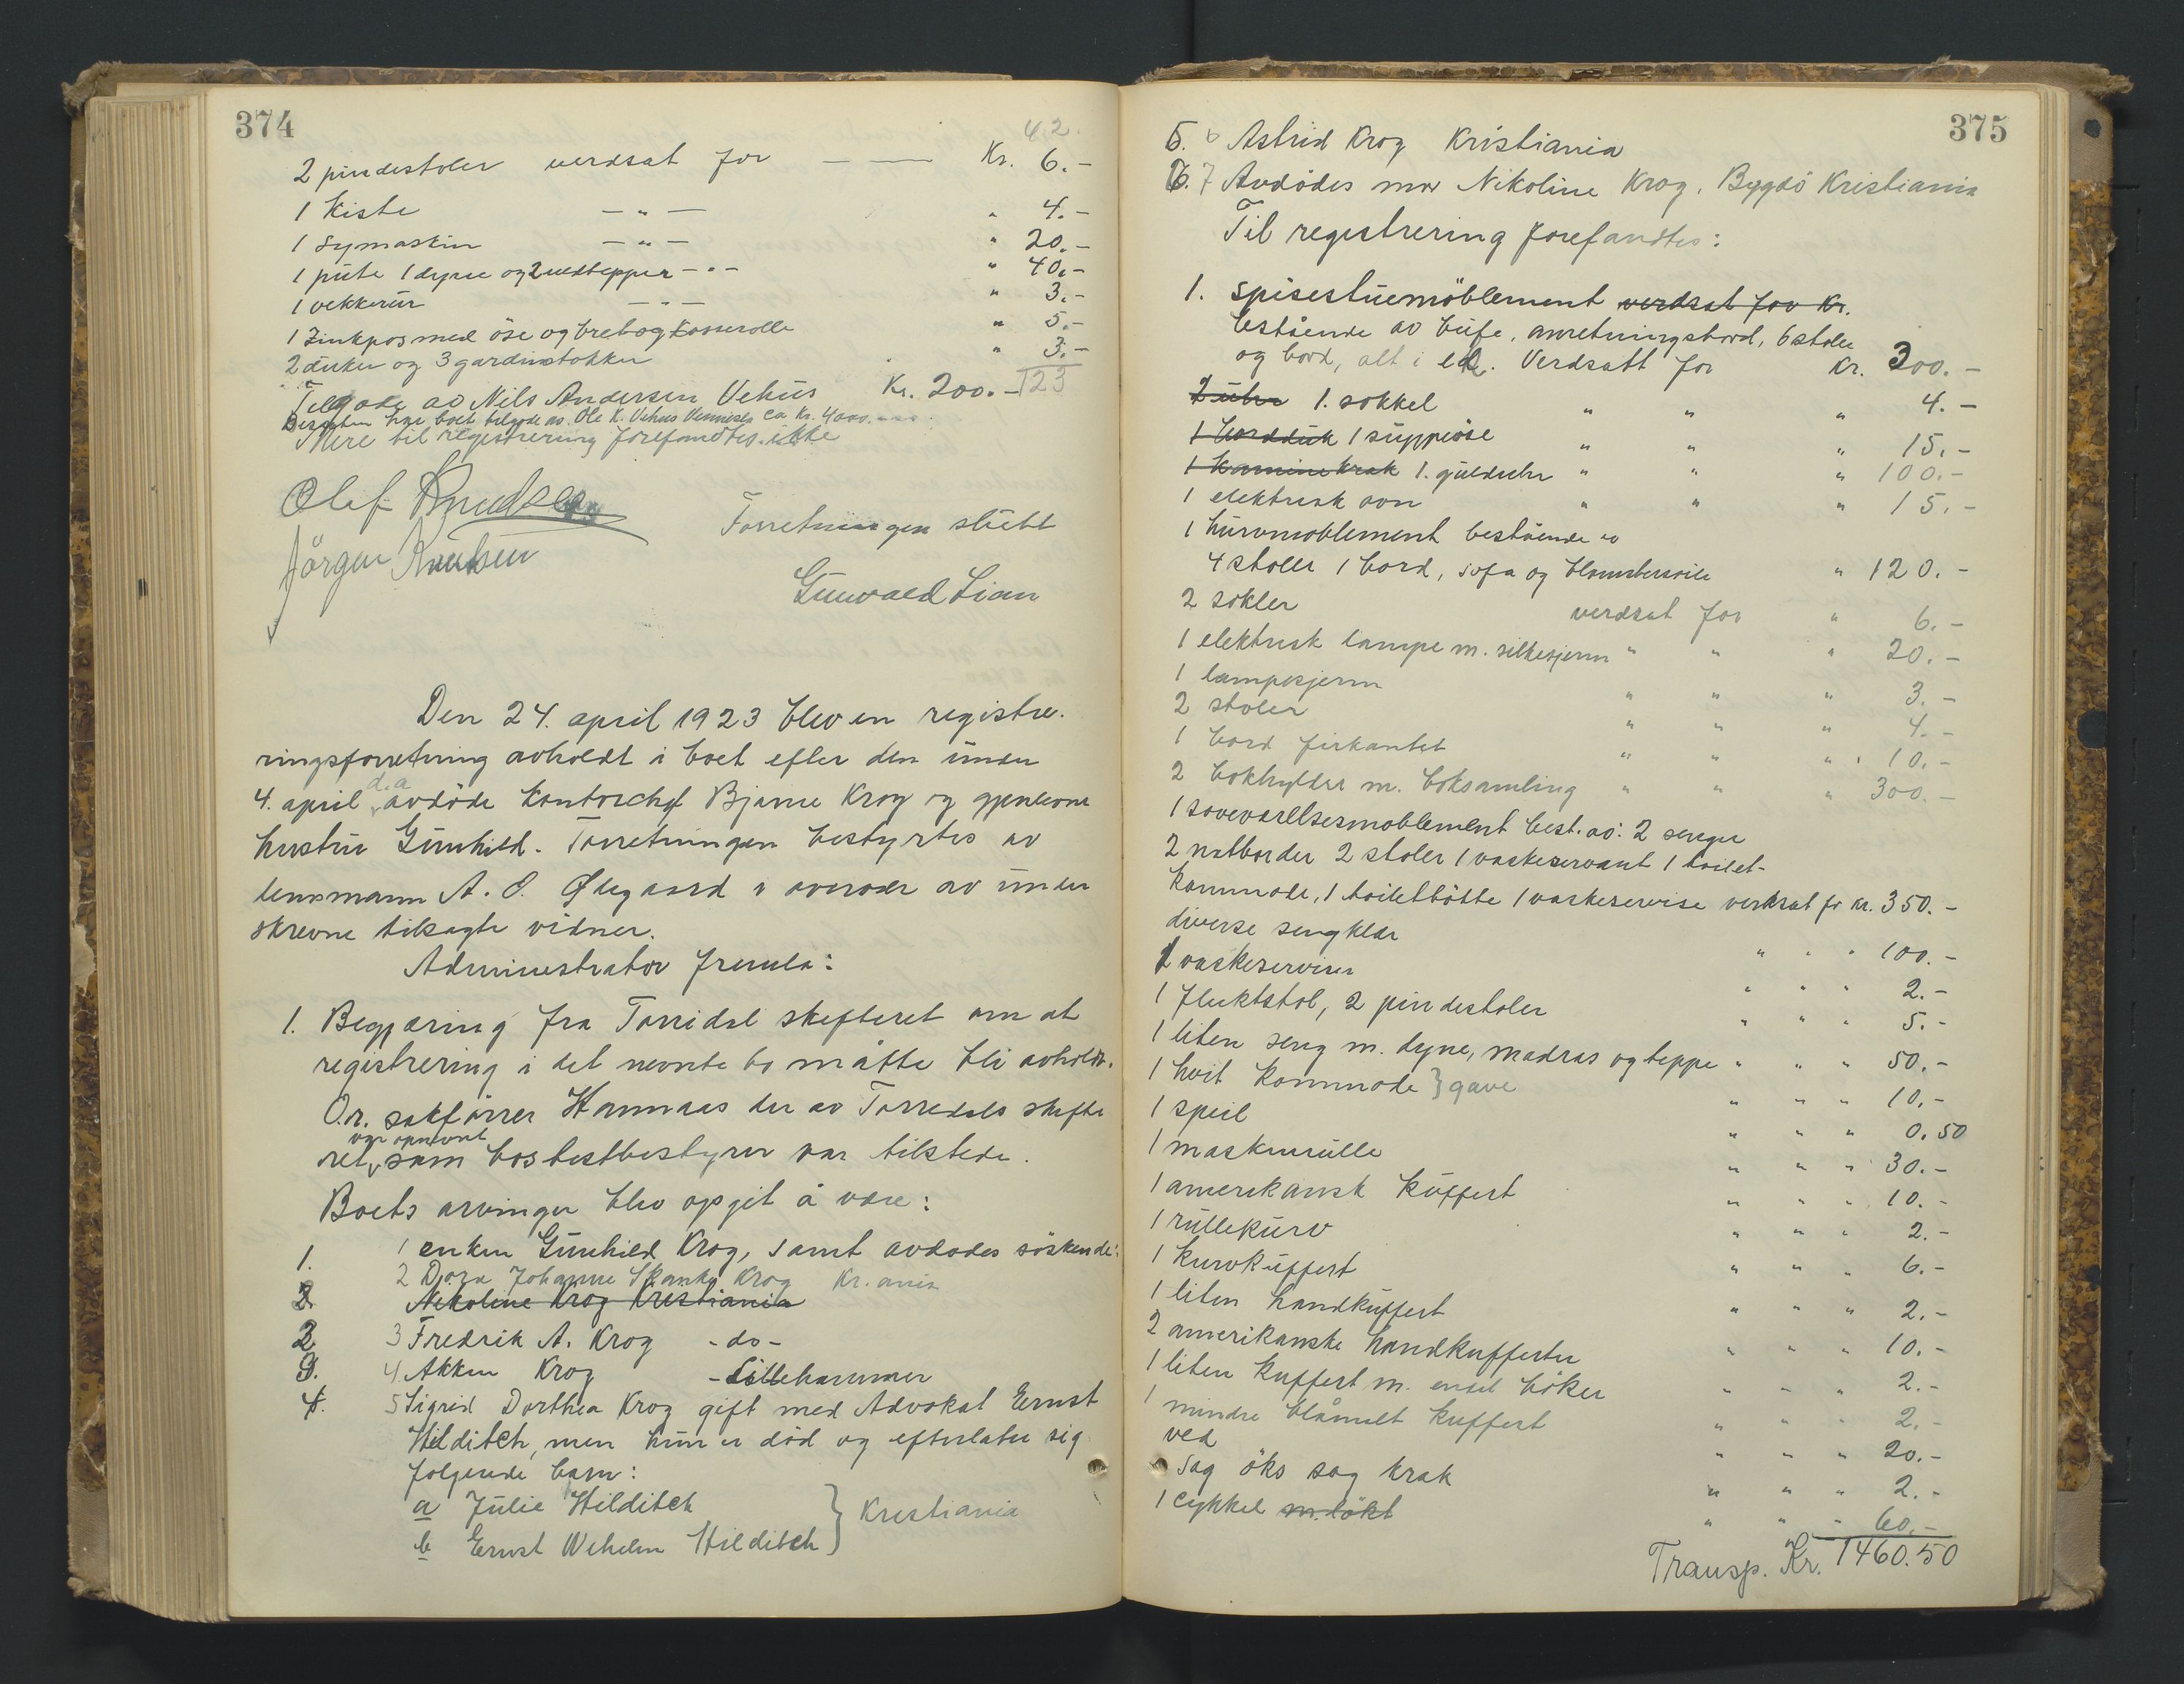 374
42.
2 pindestoler verdsat for — — Kr. 6.-
1 Kiste — " — " 4.-
1 Symaskin — " — " 20.-
1 pute 1 dyne og 2 uldtepper — " — " 40.-
1 vekkerur — " — " 3.-
1 Zinkpos med öse og bret og Kasserolle " 5.-
2 duker og 3 gardinstokker " 3.-
Tilgode av Nils Andersen Vehus Kr. 200.- 123
Desuten har boet tilgode av Ole K. Vehus Vennesla ca Kr. 4000.-
Mere til registrering forefandtes ikke
Olaf Knudsen
Forretningen sluttt
Jörgen Knutsen
Gunvald Lian
Den 24. april 1923 blev en registre-
ringsforretning avholdt i boet efter den under
4. april d.a avdöde Kontorchef Bjarne Krog og gjenlevne
hustru Gunhild. Forretningen bestyrtes av
lensmann A. O. Øegaard i overvær av under
skrevne tilsagte vidner.
Administrator fremla:
1. Begjæring fra Torridal skifteret om at
registrering i det nevnte bo måtte bli avholdt.
O.r. sakförer Hannaas der av Torridals skifte
ret var opnevnt som bostestbestyrer var tilstede.
Boets arvinger blev opgit å være:
1. 1 enken Gunhild Krog, samt avdödes söskende:
2 Djora Johanne Skanke Krog Kr.ania
2. Nikoline Krog Kristiania
2 3 Fredrik A. Krog -do-
3. 4 Akken Krog - Lillehammer
4. 5 Sigrid Dorthea Krog gift med Advokat Ernst
Hilditch, men hun er död og efterlater sig
følgende barn:
a Julie Hilditch } Kristiania
b Ernst Wilhelm Hilditch
375
5. 6 Astrid Krog Kristiania
6. 7 Avdödes mor Nikoline Krog, Bygdö Kristiania
Til registrering forefandtes:
1. spisestuemöblement verdsat for Kr.
bestående av bufe, anretningsbord, 6 stoler
og bord, alt i ek. Verdsatt for Kr. 300.-
2 uhr 1. sokkel " " " 4.-
1 bordduk 1 suppeöse " " " 15.-
1 kaminekrak 1. gulduhr " " " 100.-
1 elektrisk ovn " " " 15.-
1 kurvmoblement bestående av
4 stoler 1 bord, sofa og blomstersöile " 120.-
2 sokler verdsat for " 6.-
1 elektrisk lampe m. silkesjerm " " " 20.-
1 lampesjerm " " " 3.-
2 stoler " " " 4.-
1 bord firkantet " " " 10.-
2 bokhylder m. boksamling " " " 300.-
1 soveværelsesmoblement best. av: 2 senger
2 natborder 2 stoler 1 vaskeservant 1 toilet-
kommode, 1 toiletbötte 1 vaskeservise verdsat for kr. 350.-
diverse sengklær " " " 100.-
1 vaskeserviser " " " 2.-
1 fluktstol, 2 pindestoler " " " 5.-
1 liten seng m. dyne, madras og teppe " " " 50.-
1 hvit Kommode } gave " " " 10.-
1 speil " " " 0.50
1 maskinrulle " " " 30.-
1 amerikansk kuffert " " " 10.-
1 rullekurv " " " 2.-
1 kurvkuffert " " " 6.-
1 liten handkuffert " " " 2.-
2 amerikanske handkufferter " " " 10.-
1 liten kuffert m. endel böker " " " 2.-
1 mindre blåmalt kuffert " " " 2.-
ved " " " 20.-
1 sag öks sag krak " " " 2.-
1 cykkel m. lökt " " " 60.-
Transp. Kr. 1460.50